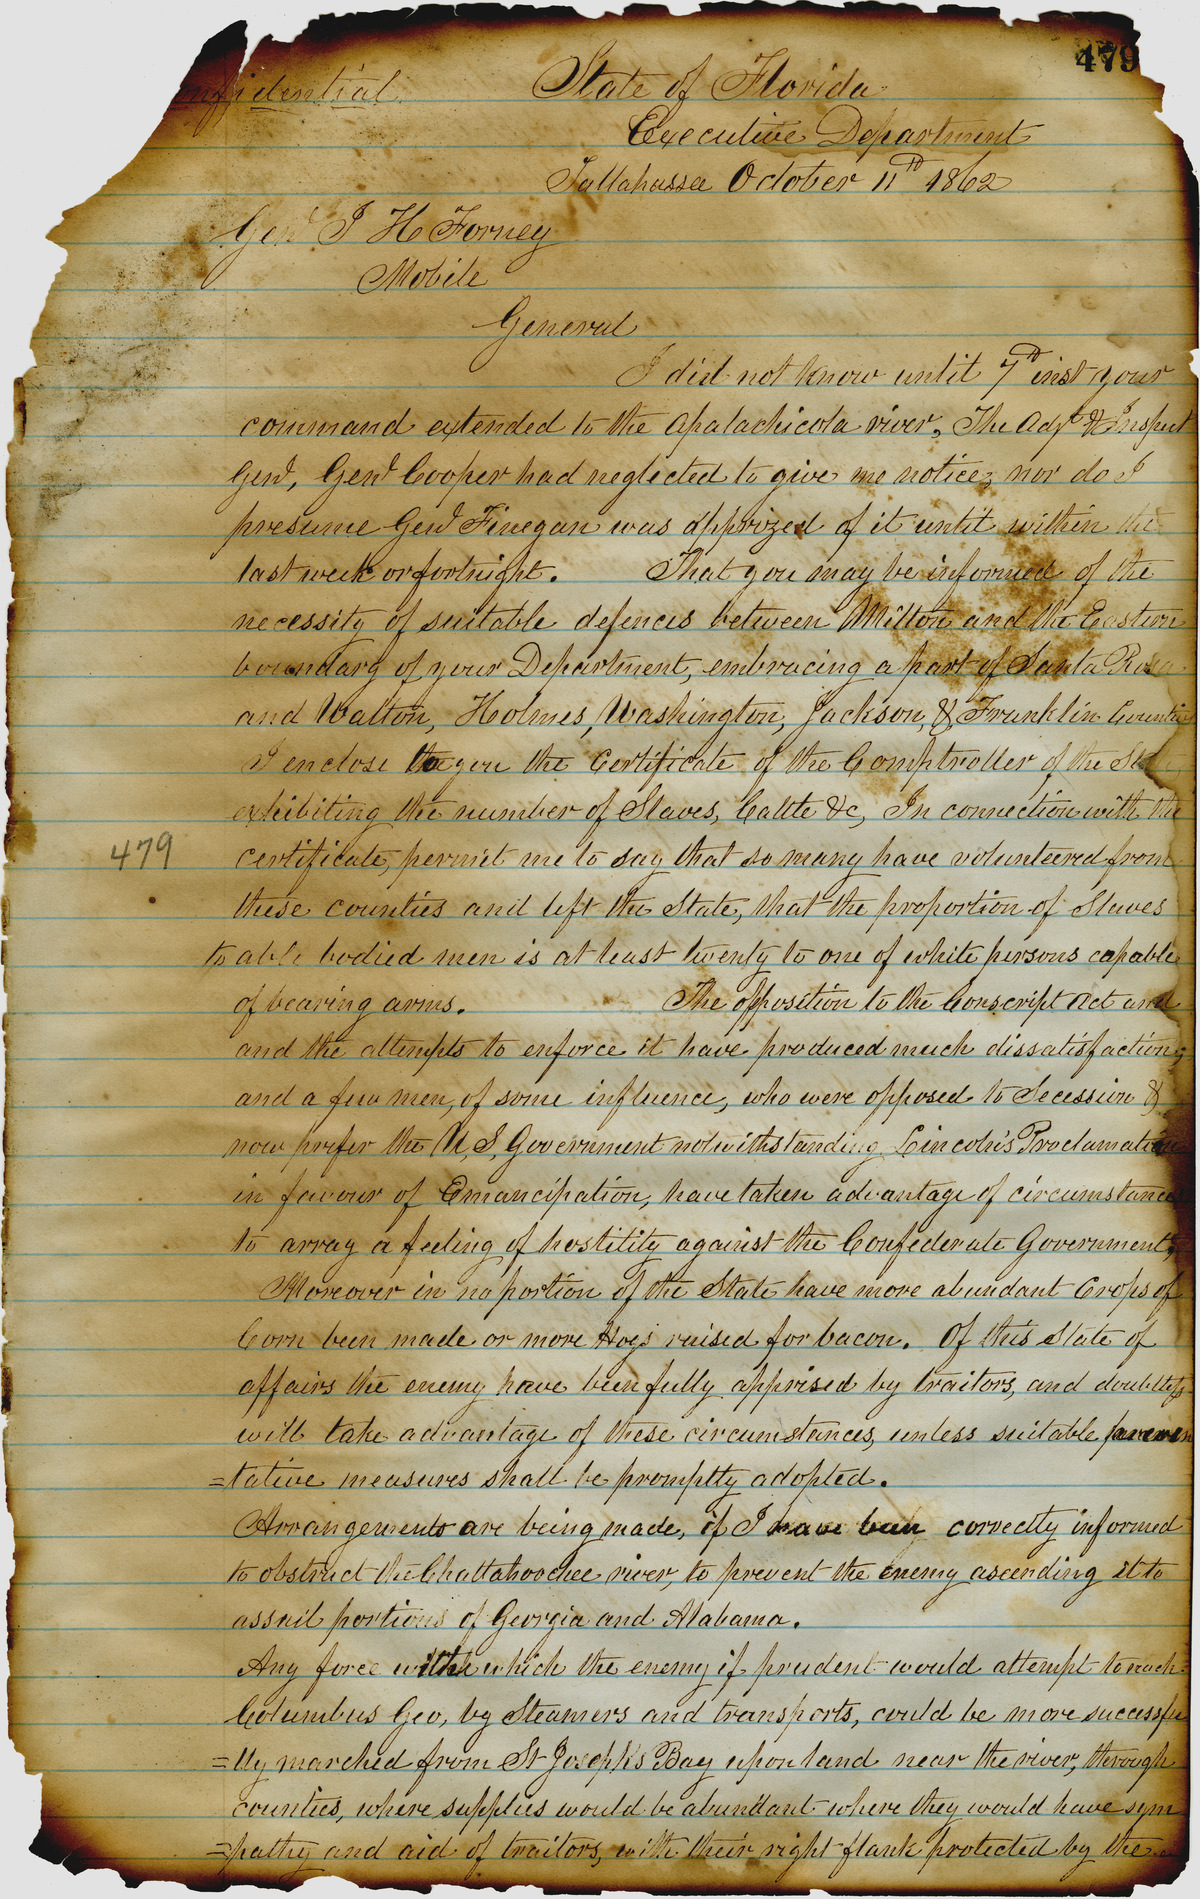 479
nfidential
State of Florida
Executive Department
Tallahassee October 11th 1862
Genl J H Forney
Mobile
General
I did not know until 7th inst your
command extended to the Apalachicola river. The Adjt & Inspect
Genl, Genl Cooper had neglected to give me notice; nor do I
presume Genl Finegan was apprized of it until within the
last week or fortnight. That you may be informed of the
necessity of suitable defences between Milton and the Eastern
boundary of your Department, embracing a part of Santa Rosa
and Walton, Holmes, Washington, Jackson, & Franklin Counties
I enclose to you the Certificate of the Comptroller of the State,
exhibiting the number of Slaves, Cattle &c, In connection with the
479
certificate, permit me to say that so many have volunteered from
these counties and left the State, that the proportion of Slaves
to able bodied men is at least twenty to one of white persons capable
of bearing arms. The opposition to the Conscript Act and
and the attempts to enforce it have produced much dissatisfaction,
and a few men, of some influence, who were opposed to Secession &
now prefer the U.S. Government notwithstanding Lincoln's Proclamation
in favour of Emancipation, have taken advantage of circumstances
to array a feeling of hostility against the Confederate Government,
Moreover in no portion of the State have more abundant Crops of
Corn been made or more Hogs raised for bacon. Of this state of
affairs the enemy have been fully apprised by traitors, and doubtless
will take advantage of these circumstances, unless suitable preven
=tative measures shall be promptly adopted.
Arrangements are being made, if I have been correctly informed
to obstruct the Chattahoochee river, to prevent the enemy ascending it to
assail portions of Georgia and Alabama.
Any force with which the enemy if prudent would attempt to reach
Columbus Geo, by Steamers and transports, could be more successfu
=lly marched from St Joseph's Bay upon land near the river, through
counties, where supplies would be abundant where they would have sym
=pathy and aid of traitors, with their right flank protected by the